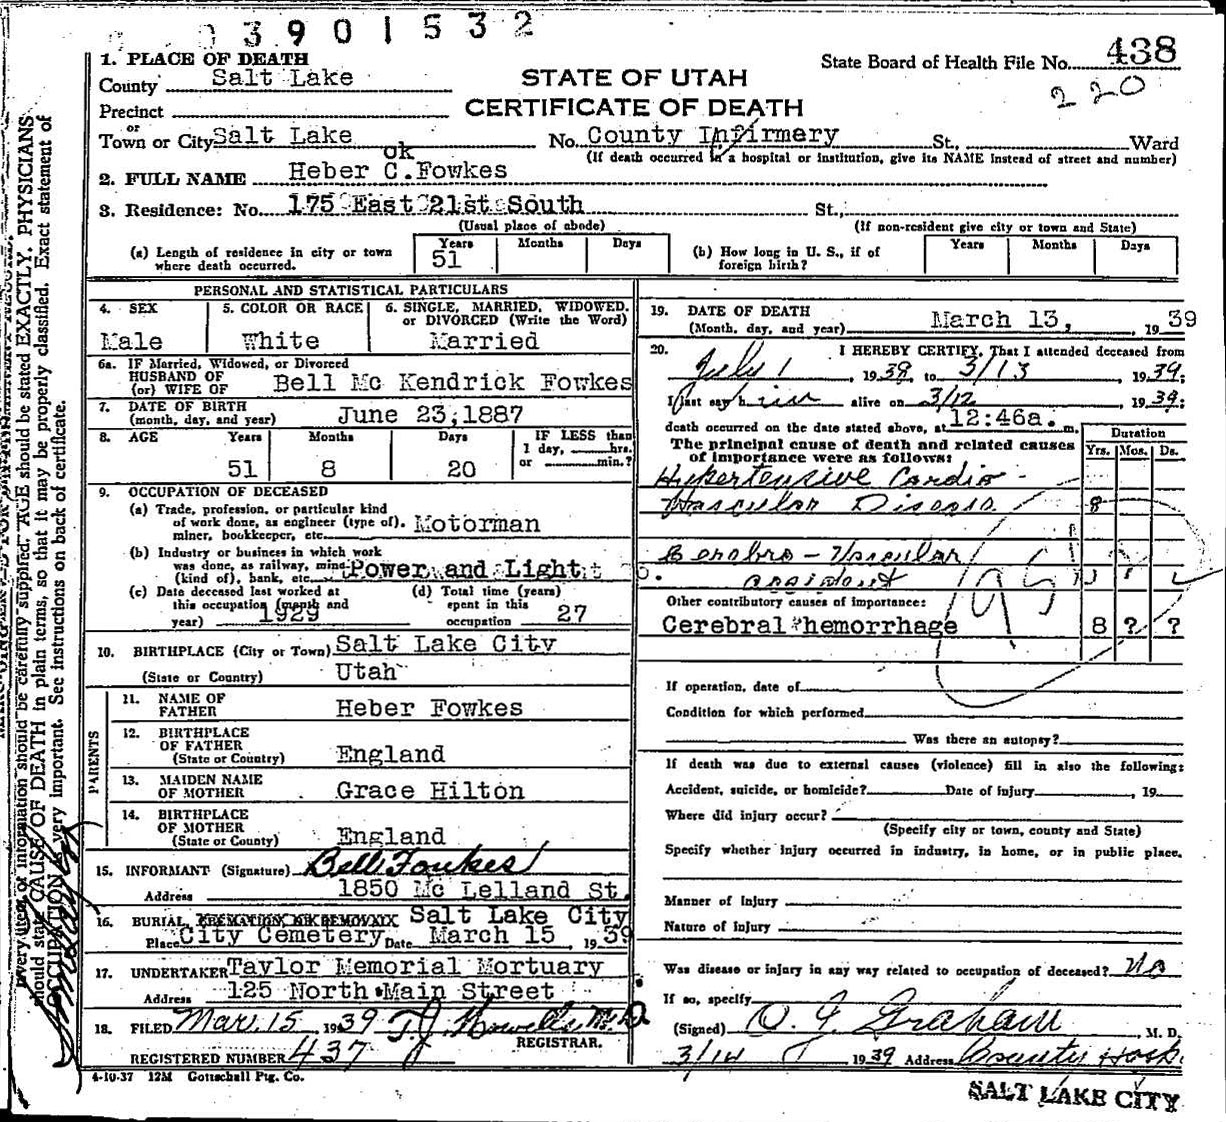 03901532
1. PLACE OF DEATH
County Salt Lake
STATE OF UTAH
CERTIFICATE OF DEATH
State Board of Health File No. 438
220
Precinct
or
Town or City Salt Lake No. County Infirmery St., Ward
(If death occurred in a hospital or institution, give its NAME instead of street and number)
ok
2. FULL NAME Heber C. Fowkes
3. Residence: No. 175 East 21st South St.,
(Usual place of abode) (If non-resident give city or town and State)
(a) Length of residence in city or town where death occurred. Years 51 Months Days
(b) How long in U. S., if of foreign birth? Years Months Days
PERSONAL AND STATISTICAL PARTICULARS
4. SEX Male
5. COLOR OR RACE White
6. SINGLE, MARRIED, WIDOWED, or DIVORCED (Write the Word) Married
6a. IF Married, Widowed, or Divorced
HUSBAND OF
(or) WIFE OF Bell Mc Kendrick Fowkes
7. DATE OF BIRTH
(month, day, and year) June 23, 1887
8. AGE Years 51 Months 8 Days 20 IF LESS than 1 day, hrs. or min.?
9. OCCUPATION OF DECEASED
(a) Trade, profession, or particular kind
of work done, as engineer (type of),
miner, bookkeeper, etc. Motorman
(b) Industry or business in which work
was done, as railway, mine
(kind of), bank, etc. Power and Light
(c) Date deceased last worked at
this occupation (month and
year) 1929
(d) Total time (years)
spent in this
occupation 27
10. BIRTHPLACE (City or Town) Salt Lake City
(State or Country) Utah
PARENTS
11. NAME OF
FATHER Heber Fowkes
12. BIRTHPLACE
OF FATHER
(State or Country) England
13. MAIDEN NAME
OF MOTHER Grace Hilton
14. BIRTHPLACE
OF MOTHER
(State or County) England
15. INFORMANT (Signature) Bell Fowkes
Address 1850 Mc Lelland St.
16. BURIAL, CREMATION, OR REMOVAL Salt Lake City
Place City Cemetery Date March 15, 1939
17. UNDERTAKER Taylor Memorial Mortuary
Address 125 North Main Street
18. FILED Mar. 15 1939 T. J. Howells M.D.
REGISTRAR.
REGISTERED NUMBER 437
4-10-37 12M Gottschall Ptg. Co.
19. DATE OF DEATH
(Month, day, and year) March 13, , 1939
20. I HEREBY CERTIFY, That I attended deceased from
July 1, 1938, to 3/13, 1939;
I last saw him alive on 3/12 1939;
death occurred on the date stated above, at 12:46a. m.
The principal cause of death and related causes
of importance were as follows:
Duration
Yrs. Mos. Ds.
Hypertensive Cardio-
Vascular Disease 8
Cerebro-Vascular
accident
Other contributory causes of importance:
Cerebral hemorrhage 8 ? ?
If operation, date of
Condition for which performed
Was there an autopsy?
If death was due to external causes (violence) fill in also the following:
Accident, suicide, or homicide? Date of injury , 19
Where did injury occur?
(Specify city or town, county and State)
Specify whether injury occurred in industry, in home, or in public place.
Manner of Injury
Nature of Injury
Was disease or injury in any way related to occupation of deceased? No
If so, specify
(Signed) O. J. Graham M. D.
3/14 1939 Address County Hosp.
SALT LAKE CITY
every item of information should be carefully supplied. AGE should be stated EXACTLY. PHYSICIANS
should state CAUSE OF DEATH in plain terms, so that it may be properly classified. Exact statement of
OCCUPATION is very important. See instructions on back of certificate.